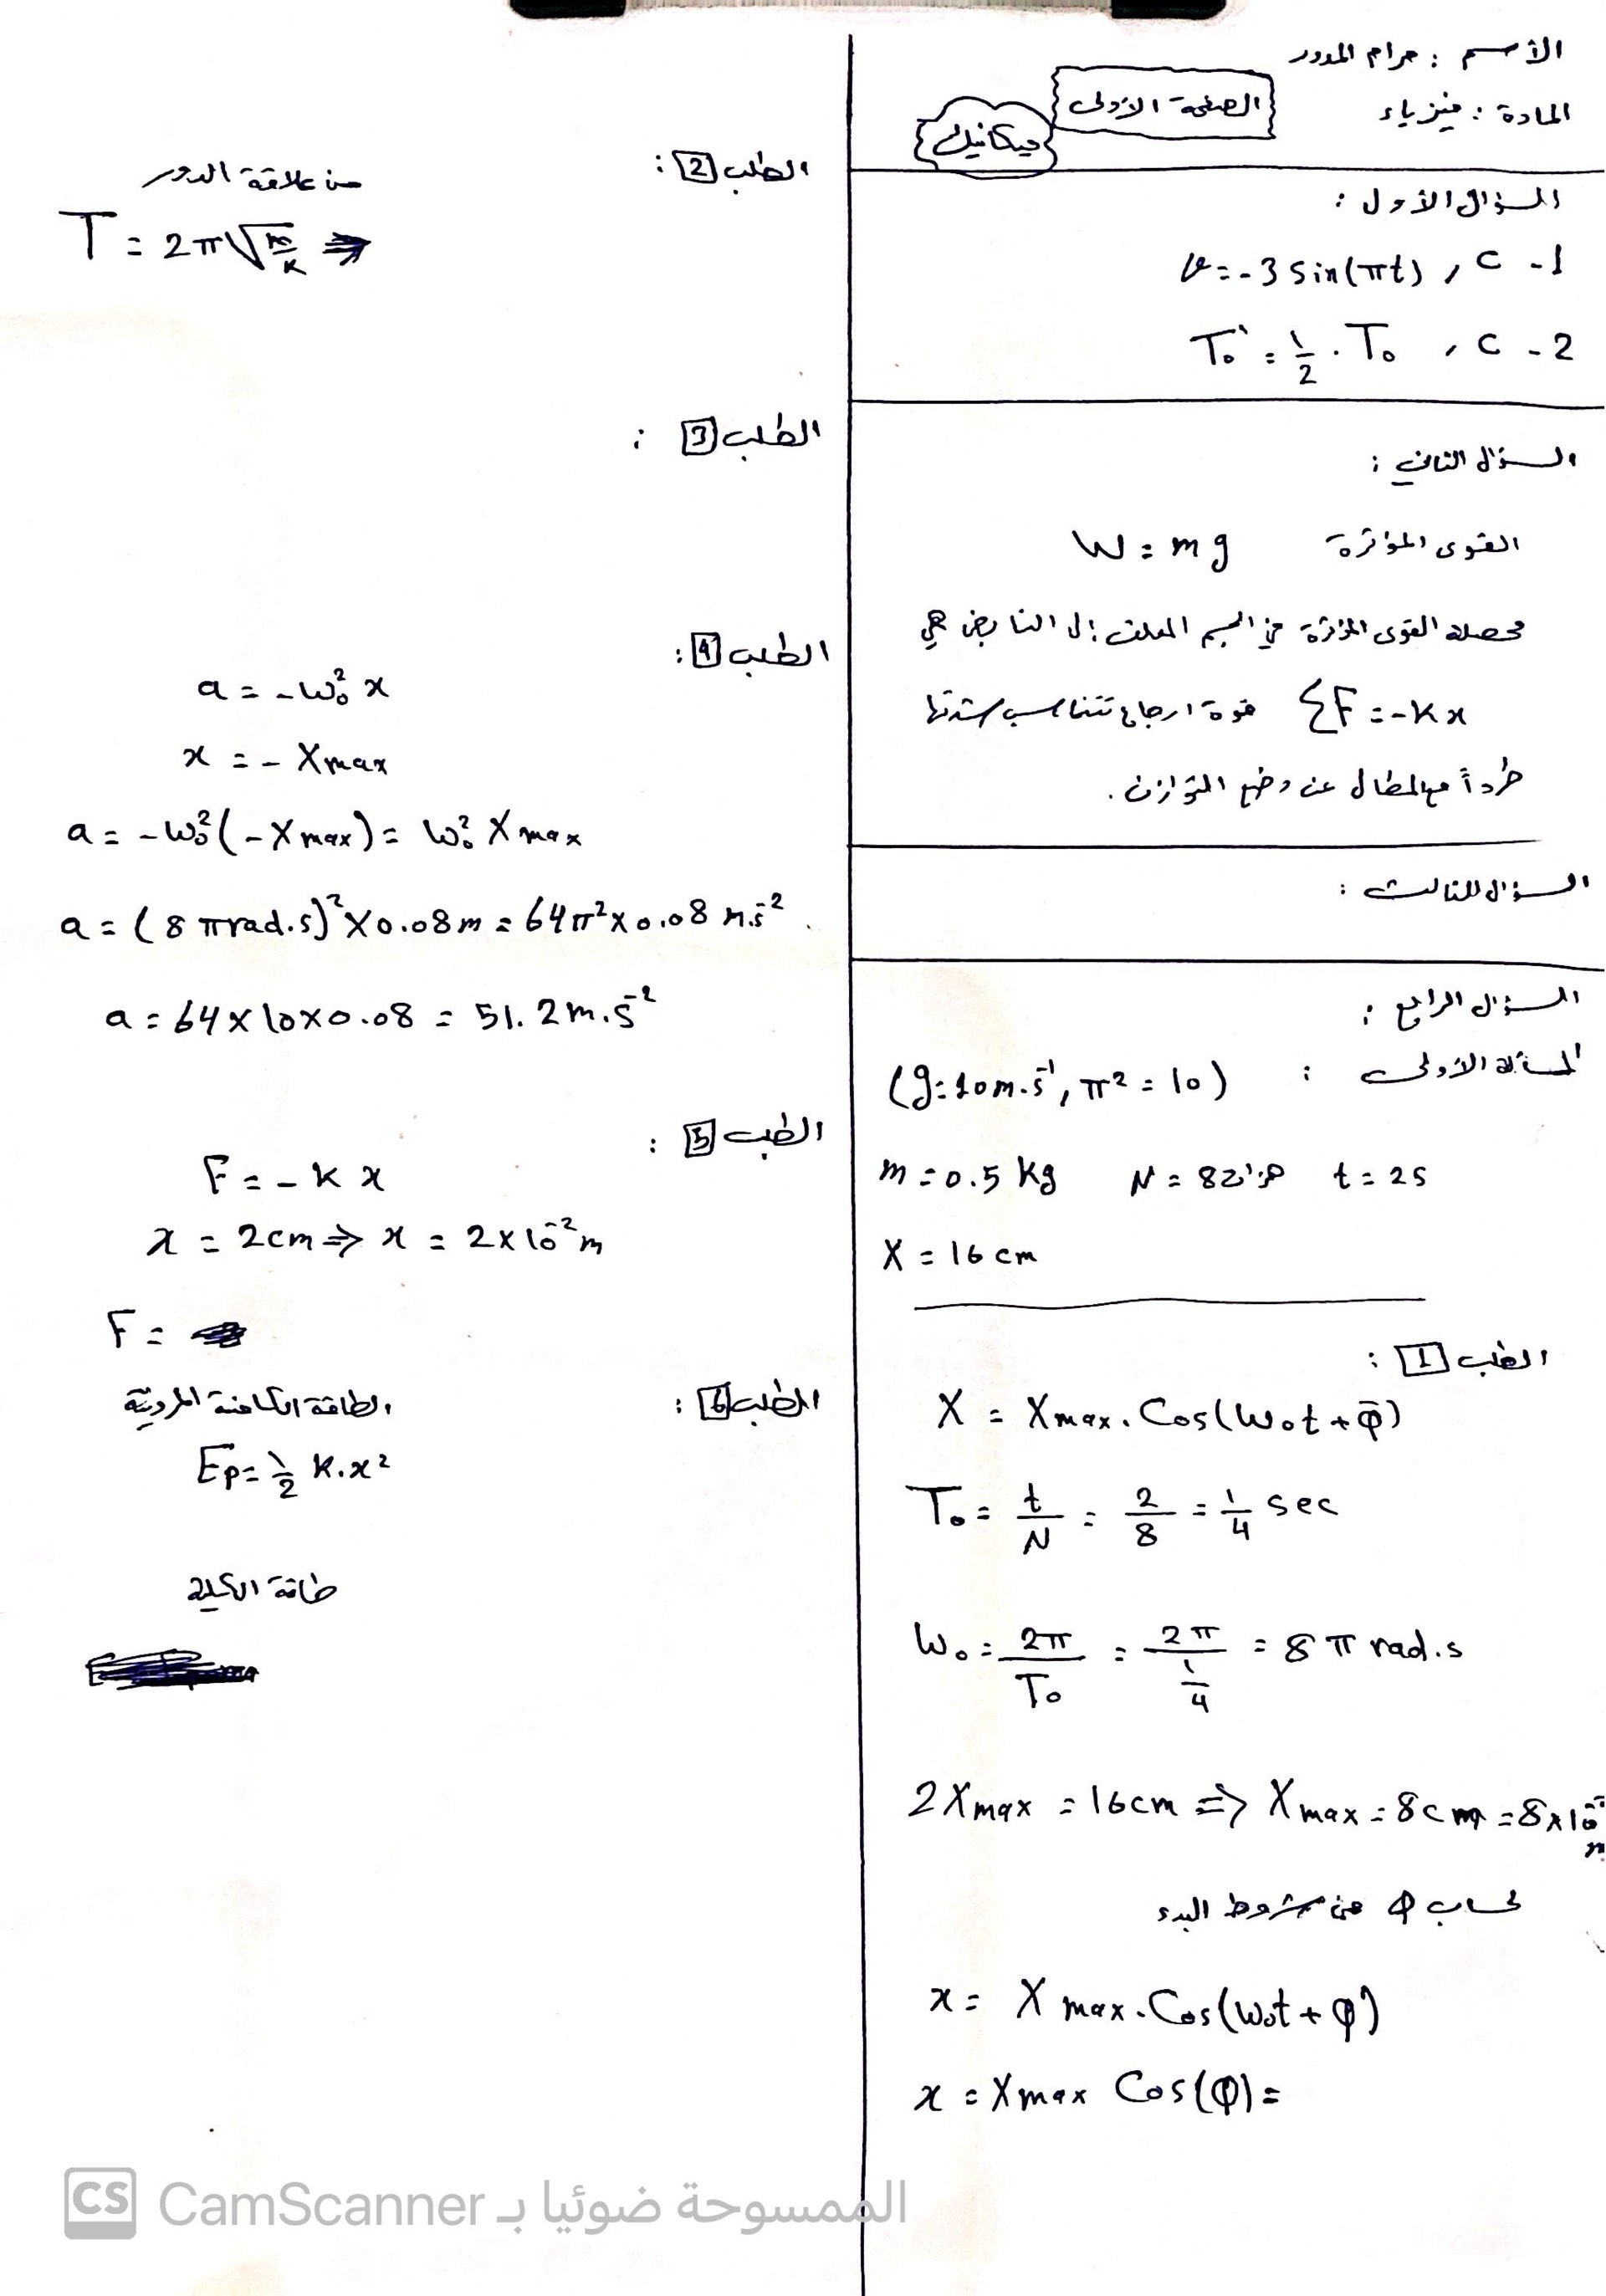 الأسم : مرام المدور
المادة : فيزياء
الصفحة الأولى
ميكانيك
السؤال الأول :
1 - C , v = -3 sin(πt)
2 - C , T₀` = 1/2 . T₀
السؤال الثاني :
القوى المؤثرة W = mg
محصلة القوى المؤثرة في الجسم المعلق إلى النابض هي
ΣF = -Kx قوة ارجاع تتناسب شدتها
طرداً مع المطال عن وضع التوازن .
السؤال الثالث :
السؤال الرابع :
المسألة الأولى : (g = 10 m.s⁻¹, π² = 10)
m = 0.5 Kg N = 8 هزات t = 2s
X = 16 cm
الطلب 1 :
X = Xmax . Cos(W₀t + φ̄)
T₀ = t/N = 2/8 = 1/4 sec
W₀ = 2π/T₀ = 2π/(1/4) = 8π rad.s
2Xmax = 16cm ⇒ Xmax = 8cm = 8×10⁻² m
لحساب φ من شروط البدء
x = Xmax . Cos(W₀t + φ)
x = Xmax Cos(φ) =
الطلب 2 :
من علاقة الدور
T = 2π√(m/K)
الطلب 3 :
الطلب 4 :
a = -W₀² x
x = - Xmax
a = -W₀²(-Xmax) = W₀² Xmax
a = (8πrad.s)² × 0.08m = 64π² × 0.08 m.s⁻² .
a = 64 × 10 × 0.08 = 51.2 m.s⁻²
الطلب 5 :
F = - K x
x = 2cm ⇒ x = 2×10⁻² m
F =
الطلب 6 :
الطاقة الكامنة المرونية
Ep = 1/2 K.x²
طاقة الكلية
CS CamScanner الممسوحة ضوئيا بـ